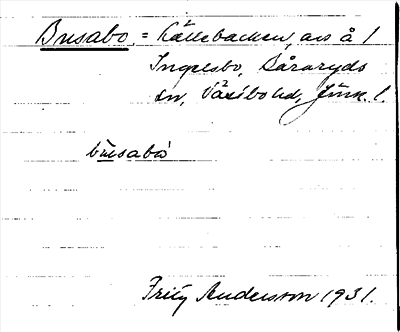 Brusabo, = Källebacken, avs å 1
Ingelsbo, Båraryds
sn, Västbo hd, Jönk. l.
brusabo
Fritz Andersson 1931.